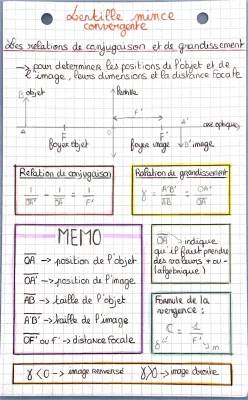 Lentille mince
convergente
Les relations de conjugaison et de grandissement
→ pour déterminer les positions de l'objet et de
l'image, leurs dimensions et la distance focale
B objet
lentille
F'
A
F
O
F'
A'
axe optique
foyer objet
foyer image
B' image
Relation de conjugaison
1/OA' - 1/OA = 1/F'
Relation de grandissement
γ = A'B'/AB = OA'/OA
MEMO
OA → position de l'objet
OA' → position de l'image
AB → taille de l'objet
A'B' → taille de l'image
OF' ou f' → distance focale
OA → indique
qu'il faut prendre
des valeurs + ou -
(algébrique)
Formule de la
vergence :
C = 1/F'
δ
m
γ<0 → image renversé
γ>0 → image droite